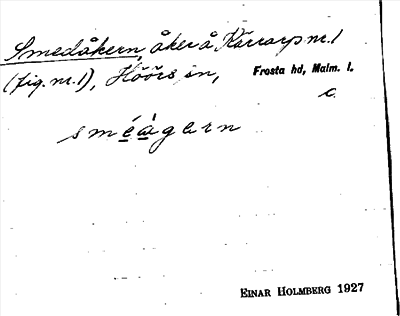 Smedåkern, åker å Kärrarp nr. 1
(fig. nr. 1), Höörs sn, Frosta hd, Malm. l.
c.
sméágern
EINAR HOLMBERG 1927